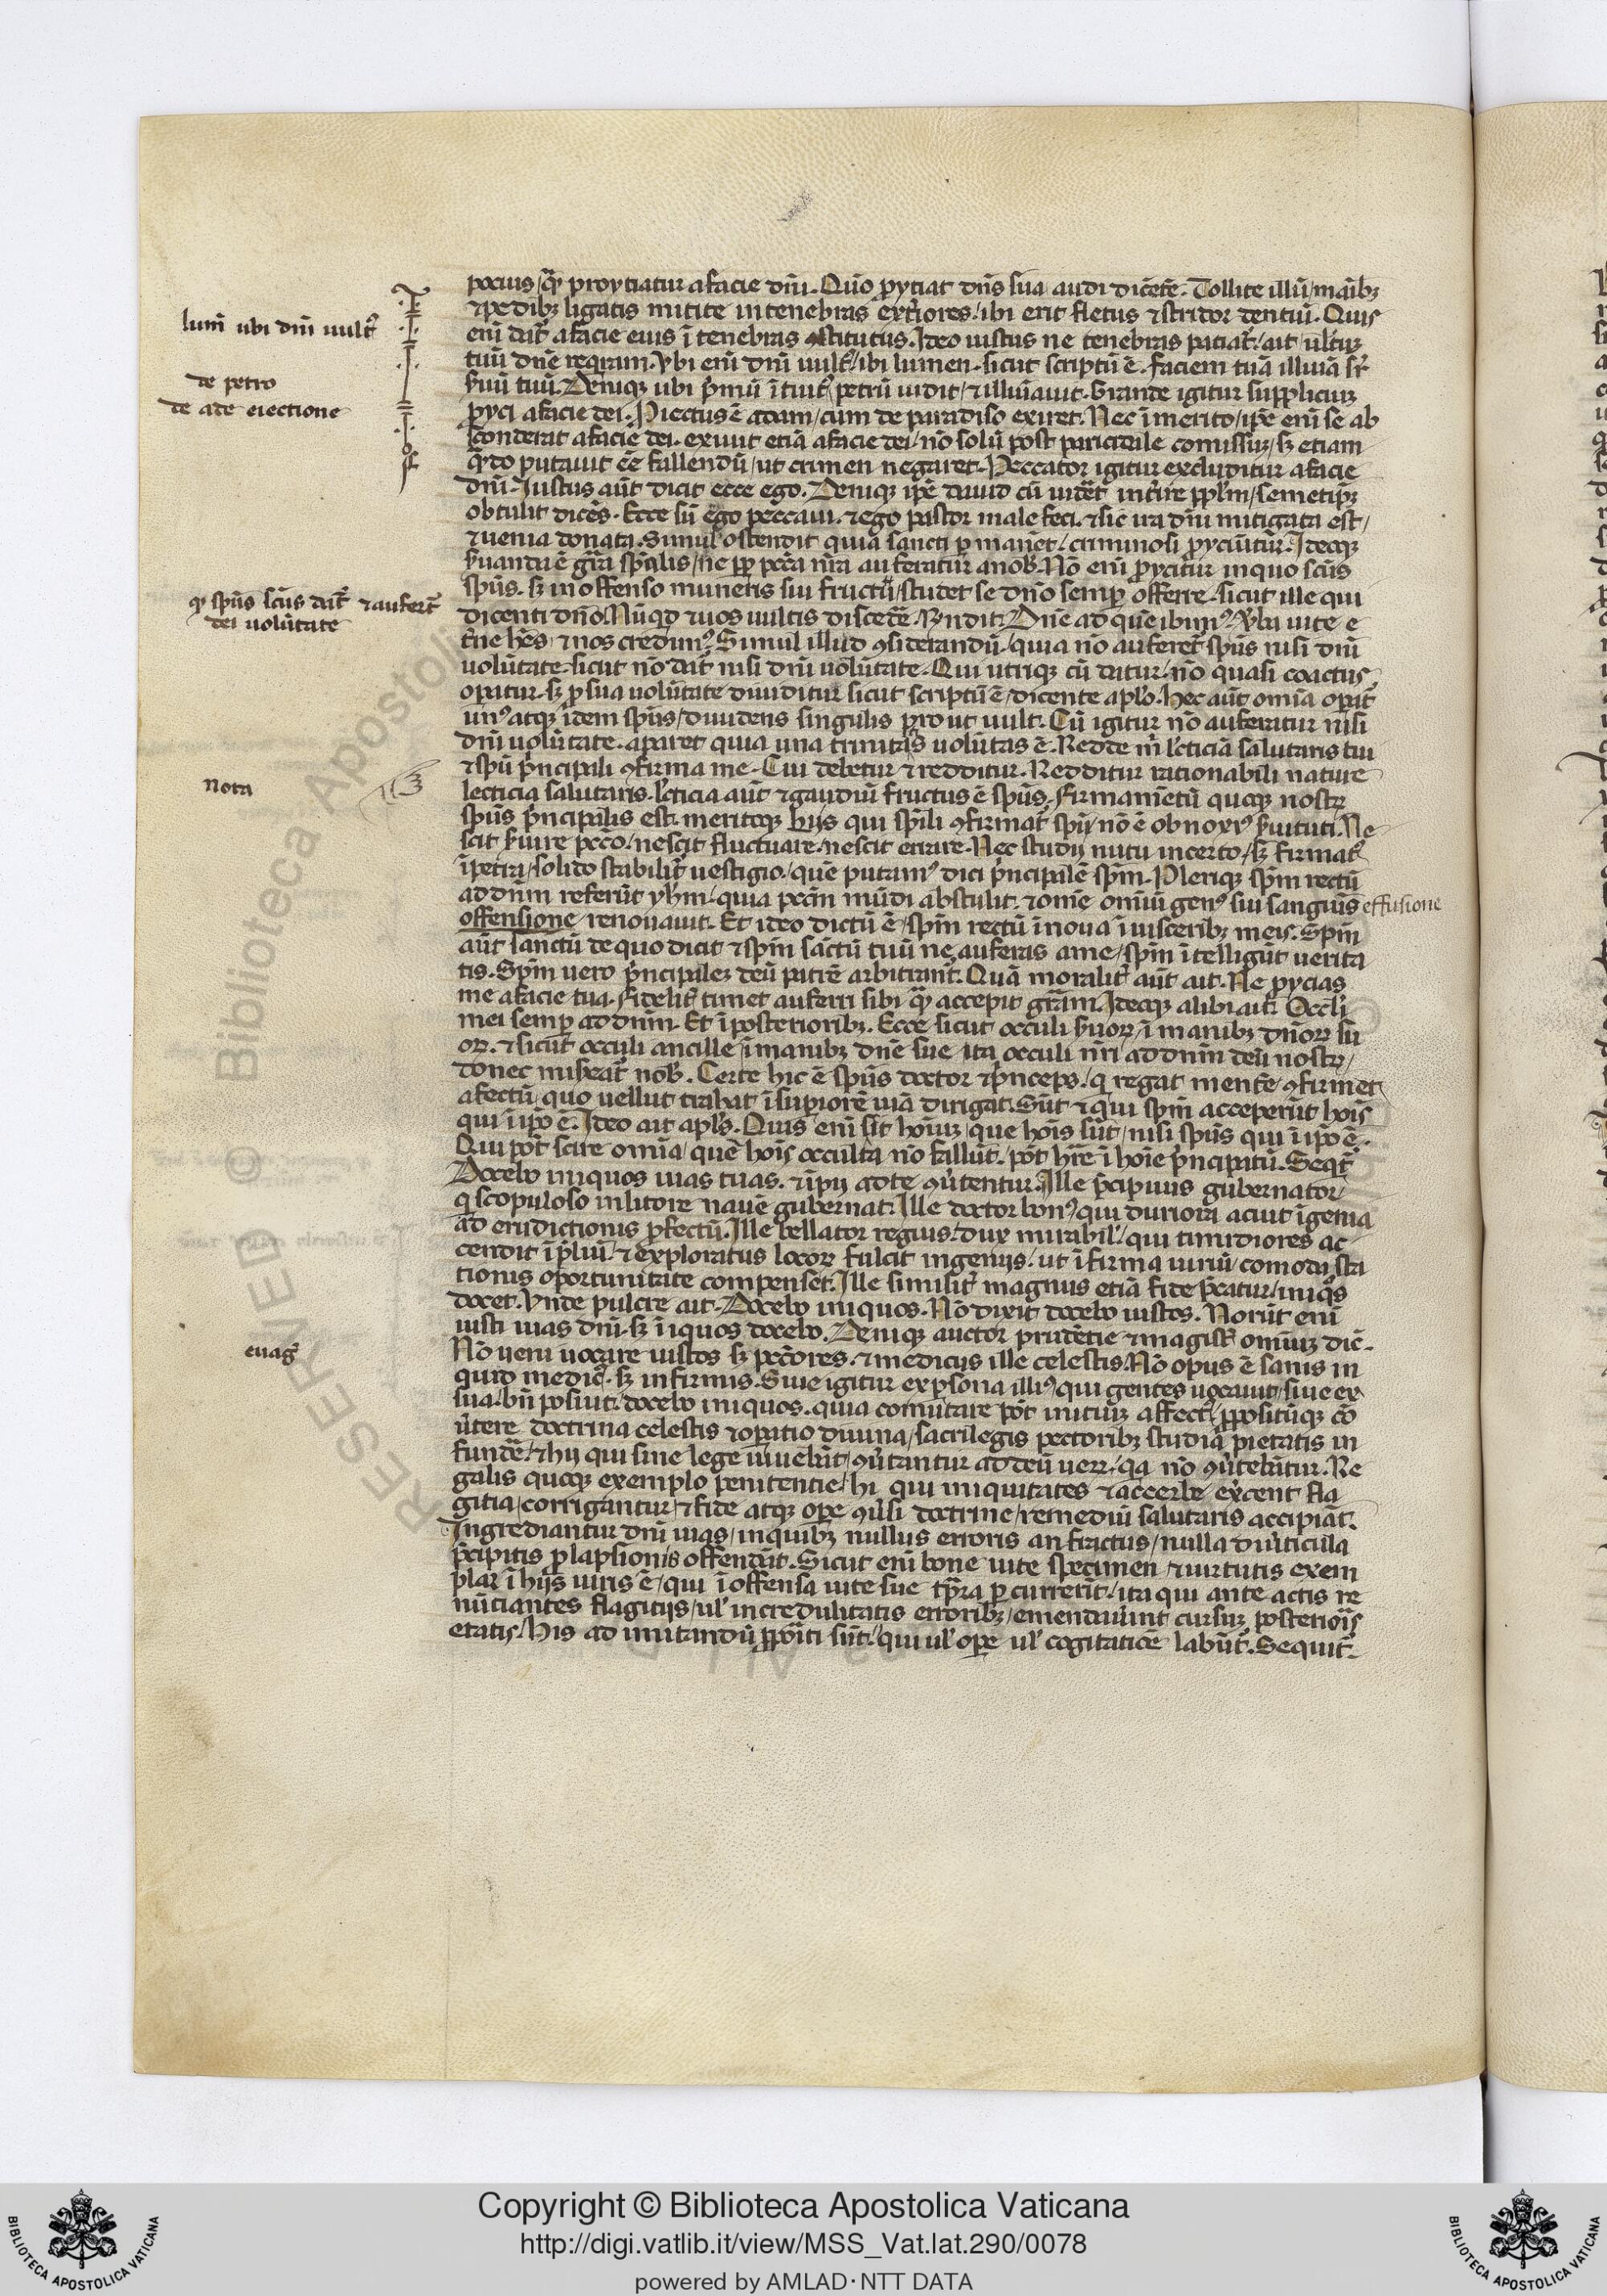 pocius qͣ proyciatur a facie dn̄i. Quō ꝓyciat dn̄s sua audi dicētē. Tollite illū manibꝫ
⁊ pedibꝫ ligatis mitite in tenebras ext̓iores. ibi erit fletus ⁊ stridor dentiū. Quis
eni͂ dat̉ a facie eius ī tenebras ꝯstitutus. Ideo iustus ne tenebras patiat̉ ait uultuꝫ
tuū dn̄e reqͥram. Vbi eni͂ dn̄i uult̉ ibi lumen. sicut scriptū ē. faciem tuā illuīa sr̄
ẜuū tuū. Deniqꝫ ubi pͥmū ītuit̉ petrū uidit ⁊ illuīauit. Grande igitur suppliciuꝫ
ꝓyci a facie dei. Piectus ē adam cum de paradiso exiret. Nec īmerito ip̄e eni͂ se ab
sconderat a facie dei. exiuit etiā a facie dei nō solū post paricidale comissuꝫ sꝫ etiam
qͣdo putauit eē fallendū ut crimen negaret. Peccator igitur excluditur a facie
dn̄i. Iustus aūt dicit ecce ego. Deniqꝫ ip̄e dauid cū uidēt int̓ire ppl̄m semetip̄ꝫ
obtulit dicēs. Ecce sū ego peccaui. ⁊ ego pastor male feci. ⁊ sic ira dn̄i mitigata est
⁊ uenia donata. Simul ostendit quia sancti ꝑmanēt criminosi ꝓyciūtur. Ideoqꝫ
ẜuanda ē gr̄a sp̄alis ne ꝓp̄ pctā nr̄a auferatur a nob̓. Nō eni͂ ꝓycitur in quo scūs
sp̄us. sꝫ in offenso muneris sui fructū studet se dn̄o semꝑ offerre. sicut ille qui
dicenti dn̄o. Nūqͥd ⁊ uos uultis discedē. Rn̄dit. Dn̄e ad quē ibimꝰ. Vb̓a uite e
t̓ne hēs ⁊ nos credimꝰ. Simul illud ꝯsiderandū quia nō auferet̉ sp̄us nisi dn̄i
uolūtate. sicut nō dat̉ nisi dn̄i uolūtate. Qui utriqꝫ cū datur nō quasi coactus
oꝑatur. sꝫ ꝓ sua uolūtate diuiditur sicut scriptū ē dicente apl̓o. Hec aūt omīa oꝑat̉
unꝰ atqꝫ idem sp̄us diuidens singulis prout uult. Cū igitur nō auferatur nisi
dn̄i uolūtate. aparet quia una trinitatͥs uolūtas ē. Redde m̄ leticiā salutaris tui
⁊ spū pͥncipali ꝯfirma me. Cui debetur ⁊ redditur. Redditur rationabili nature
lecticia salutaris. leticia aūt ⁊ gaudiū fructus ē sp̄us. Firmamētū quoqꝫ nostꝝ
sp̄us pͥncipalis est. meritoqꝫ hijs qui sp̄ili ꝯfirmat̉ spū nō ē obnoxiꝰ ẜuituti. Ne
scit ẜuire pctō nescit fluctuare nescit errare. Nec studij nutu incerto sꝫ firmat̉
ī petra solido stabilit̉ uestigio quē putamꝰ dici pͥncipalē spm̄. Pleriqꝫ spm̄ rectū
ad dn̄m referūt yhm̄ quia pctm̄ mūdi abstulit. ⁊ omē omīū genꝰ sui sanguīs effusione
offensione renouauit. Et ideo dictū ē spm̄ rectū īnoua ī uisceribꝫ meis. Spm̄
aūt sanctū de quo dicit ⁊ spm̄ sāctū tuū ne auferas a me spm̄ ītelligūt uerita
tis. Spm̄ uero pͥncipaleꝫ deū patrē arbitrant̉. Quā moralit̉ aūt ait. Ne ꝓycias
me a facie tua. Fidelit̉ timet auferri sibi qͣ accepit gr̄am. Ideoqꝫ alibi ait. Occl̓i
mei semꝑ ad dn̄m. Et ī posterioribꝫ. Ecce sicut occuli ẜuoꝝ ī manibꝫ dn̄oꝝ su
oꝝ. ⁊ sicut occuli ancille ī manibꝫ dn̄e sue ita occuli nr̄i ad dn̄m deū nostꝝ
donec miẜeat̉ nob̓. Certe hic ē sp̄us doctor ⁊ pͥnceps. qͥ regat mentē ꝯfirmet
afectū quo uellut trahat ī suꝑiorē uiā dirigat. Sūt ⁊ qui spm̄ acceperūt hoīs
qui ī ip̄o ē. Ideo ait apl̓s. Quis eni͂ sit hoīuꝫ que hoīs sūt nisi sp̄us qui ī ip̄o ē.
Qui pōt scire omīa que hoīs occulta nō fallūt. pōt hr̄e ī hoīe pͥncipatū. Seqͥt̉
Docebo iniquos uias tuas. ⁊ īpij ad te ꝯu̓tentur. Ille pͥcipuus gubernator
qͥ scopuloso in litore nauē gubernat. Ille doctor bonꝰ qui duriora acuit īgenia
ad erudictionis ꝓfectū. Ille bellator regius dux mirabil̓ qui timidiores ac
cendit ī p̄liū ⁊ exploratus locoꝝ fulcit ingenijs ut ī firma uiriū comoda sta
tionis oportunitate compenset. Ille similit̉ magnus etiā fide pͥcatur iniqͦs
docet. Vnde pulcre ait. Docebo iniquos. Nō dixit docebo iustos. Norūt eni͂
iusti uias dn̄i. sꝫ īiquos docebo. Deniqꝫ auctor prudētie ⁊ magist̉ omīuꝫ dic̄.
Nō ueni uocare iustos sꝫ pctōres. ⁊ medicus ille celestis. Nō opus ē sanis in
quid medicꝰ. sꝫ infirmis. Siue igitur ex ꝑsona illiꝰ qui gentes uocauit siue ex
sua. bn̄ posuit. docebo iniquos. quia comutare pōt initiuꝫ affectꝰ ꝓpositūqꝫ cō
u̓tere doctrina celestis ⁊ oꝑatio diuina sacrilegis pectoribꝫ studia pietatis in
fundē. ⁊ hij qui sine lege uiuebāt ꝯu̓tantur ad deū ueꝝ qͣ nō ꝯu̓tebātur. Re
galis quoqꝫ exemplo penitentie hi qui iniquitates ⁊ accerbe exͨent fla
gitia corrigantur ⁊ fide atqꝫ ope ꝯu̓si doctrine remediū salutaris accipiāt.
Ingrediantur dn̄i uias in quibꝫ nullus erroris anfractus nulla diu̓ticula
pͥcipitis ꝓlapsionis offendāt. Sicut eni͂ bone uite specimen ⁊ uirtutis exem
plar ī hijs uiris ē qui īoffensa uite sue tꝑra ꝑcurrerūt. ita qui ante actis re
nūciantes flagitijs ul̓ incredulitatis erroribꝫ emendauerunt cursuꝫ posterioīs
etatis. His ad imitandū ꝓpōiti sūt qui ul̓ oꝑe ul̓ cogitatiōe labūt̉. Sequit̉
lumē ubi dn̄i uult̉
de petro
de ade eiectione
qͦ sp̄us scūs dat̉ ⁊ aufert̉
dei uolūtate
nota
euāg̉
Copyright © Biblioteca Apostolica Vaticana
http://digi.vatlib.it/view/MSS_Vat.lat.290/0078
powered by AMLAD·NTT DATA
BIBLIOTECA APOSTOLICA VATICANA
BIBLIOTECA APOSTOLICA VATICANA